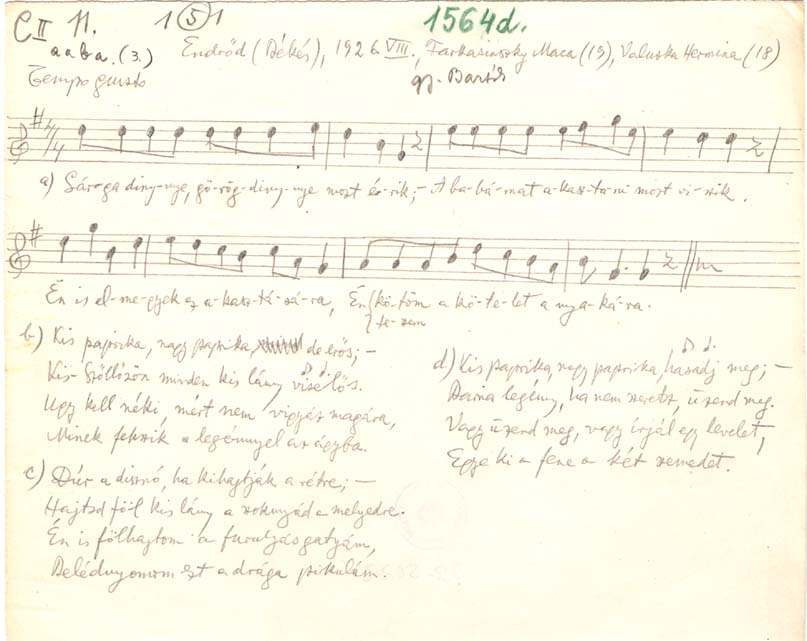 C II 11. 1 (5) 1 1564d.
a a b a. (3.) Endrőd (Békés), 1926 VIII., Farkasinszky Maca (19), Valuska Hermina (18)
Tempo giusto gy. Bartók
4/4
a) Sárga diny-nye, gö-rög-diny-nye most é-rik; – A ba-bá-mat a-kasz-ta-ni most vi-szik.
Én is el-me-gyek az a-kasz-tá-sá-ra, Én kö-töm a kö-te-let a nya-ká-ra.
te-szem
b) Kis paprika, nagy paprika de erős; –
Kis-Szöllősön minden kis lány viselős.
Ugy kell néki, mért nem vigyáz magára,
Minek fekszik a legénnyel az ágyba.
c) Dúr a disznó, ha kihajtják a rétre; –
Hajtsd föl kis lány a szoknyád a melyedre.
Én is fölhajtom a gatyám,
Beléd nyomom ezt a drága pikulám.
d) Kis paprika, nagy paprika, hasadj meg; –
Barna legény, ha nem szeretsz, üzend meg.
Vagy üzend meg, vagy írjál egy levelet,
Egye ki a fene a két szemedet.